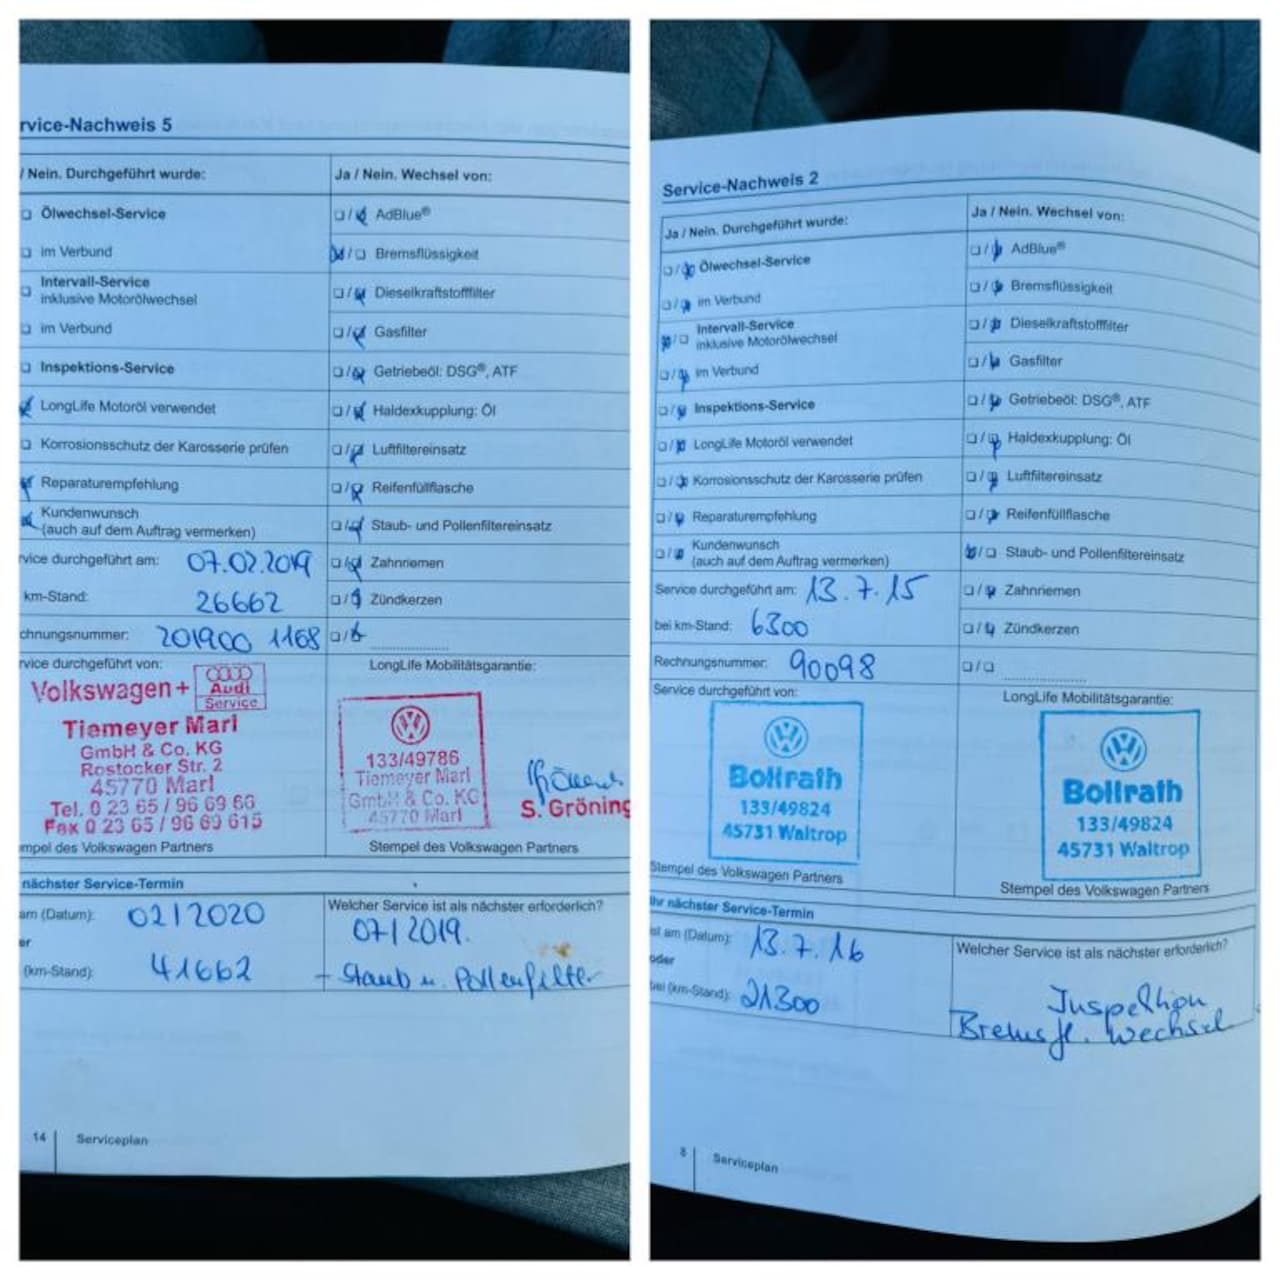 rvice-Nachweis 5
/ Nein. Durchgeführt wurde:
Ölwechsel-Service
im Verbund
Intervall-Service
inklusive Motorölwechsel
im Verbund
Inspektions-Service
LongLife Motoröl verwendet
Korrosionsschutz der Karosserie prüfen
Reparaturempfehlung
Kundenwunsch
(auch auf dem Auftrag vermerken)
rvice durchgeführt am: 07.02.2019
km-Stand: 26662
chnungsnummer: 201900 1168
Ja / Nein. Wechsel von:
/ AdBlue®
/ Bremsflüssigkeit
/ Dieselkraftstofffilter
/ Gasfilter
/ Getriebeöl: DSG®, ATF
/ Haldexkupplung: Öl
/ Luftfiltereinsatz
/ Reifenfüllflasche
/ Staub- und Pollenfiltereinsatz
/ Zahnriemen
/ Zündkerzen
/
rvice durchgeführt von:
Volkswagen + Audi
Service
Tiemeyer Marl
GmbH & Co. KG
Rostocker Str. 2
45770 Marl
Tel. 0 23 65 / 96 69 66
Fax 0 23 65 / 96 69 615
mpel des Volkswagen Partners
LongLife Mobilitätsgarantie:
133/49786
Tiemeyer Marl
GmbH & Co. KG
45770 Marl
S. Gröning
Stempel des Volkswagen Partners
nächster Service-Termin
am (Datum): 02/2020
er
(km-Stand): 41662
Welcher Service ist als nächster erforderlich?
07/2019.
- Staub u. Pollenfilter
14 Serviceplan
Service-Nachweis 2
Ja / Nein. Durchgeführt wurde:
/ Ölwechsel-Service
/ im Verbund
/ Intervall-Service
inklusive Motorölwechsel
/ im Verbund
/ Inspektions-Service
/ LongLife Motoröl verwendet
/ Korrosionsschutz der Karosserie prüfen
/ Reparaturempfehlung
/ Kundenwunsch
(auch auf dem Auftrag vermerken)
Service durchgeführt am: 13.7.15
bei km-Stand: 6300
Rechnungsnummer: 90098
Ja / Nein. Wechsel von:
/ AdBlue®
/ Bremsflüssigkeit
/ Dieselkraftstofffilter
/ Gasfilter
/ Getriebeöl: DSG®, ATF
/ Haldexkupplung: Öl
/ Luftfiltereinsatz
/ Reifenfüllflasche
/ Staub- und Pollenfiltereinsatz
/ Zahnriemen
/ Zündkerzen
/
Service durchgeführt von:
Bollrath
133/49824
45731 Waltrop
Stempel des Volkswagen Partners
LongLife Mobilitätsgarantie:
Bollrath
133/49824
45731 Waltrop
Stempel des Volkswagen Partners
Ihr nächster Service-Termin
ist am (Datum): 13.7.16
oder
bei (km-Stand): 21300
Welcher Service ist als nächster erforderlich?
Inspektion
Bremsfl. Wechsel
8 Serviceplan